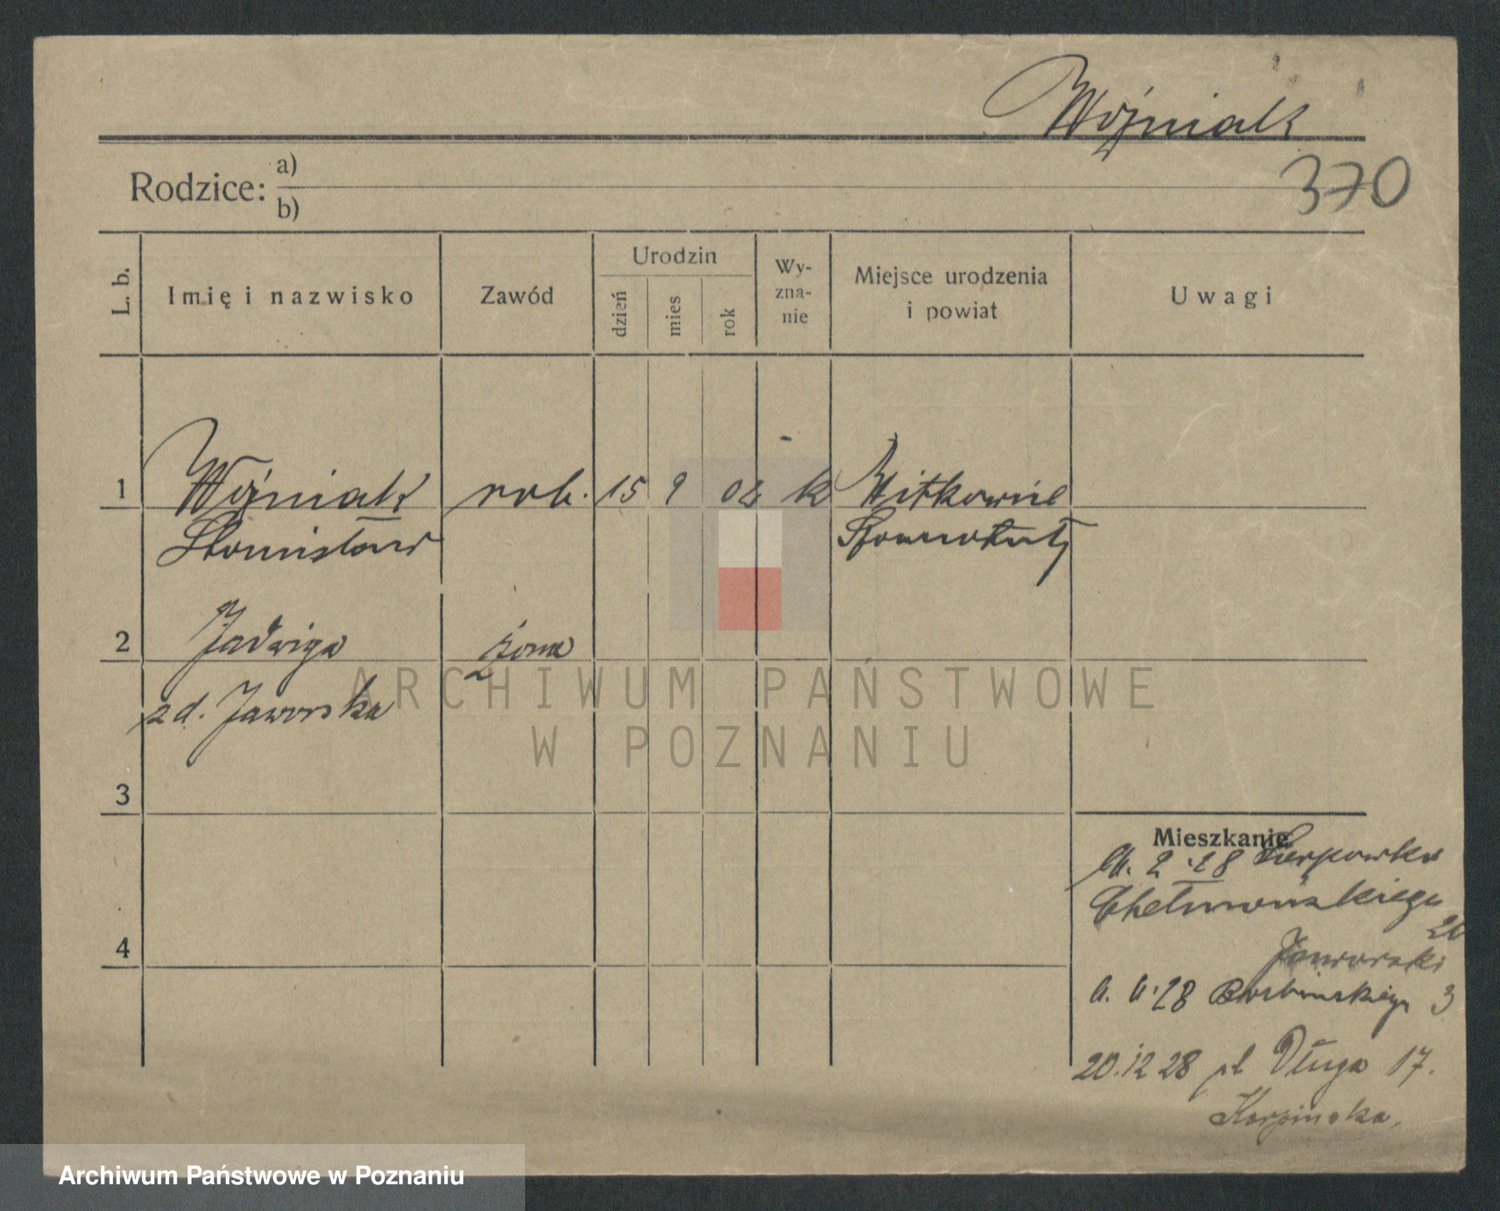 Woźniak
370
Rodzice: a)
b)
L. b. Imię i nazwisko Zawód Urodzin dzień mies rok Wy-zna-nie Miejsce urodzenia i powiat Uwagi
1 Woźniak rob. 15 9 k
Stanisław
2 Jadwiga żona
zd. Jaworska
3
4
Mieszkanie
2.28
20
Jaworski
28 3
20.12 28 pl Długa 17.
Karpińska.
ARCHIWUM PAŃSTWOWE
W POZNANIU
Archiwum Państwowe w Poznaniu